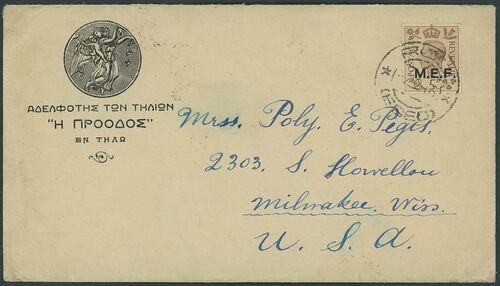 ΑΔΕΛΦΟΤΗΣ ΤΩΝ ΤΗΛΙΩΝ
"Η ΠΡΟΟΔΟΣ"
ΕΝ ΤΗΛΩ
REVENUE
M.E.F.
Mrss. Poly. E. Pegis.
2303. S. Howellou
Milwakee. Wiss.
U. S. A.